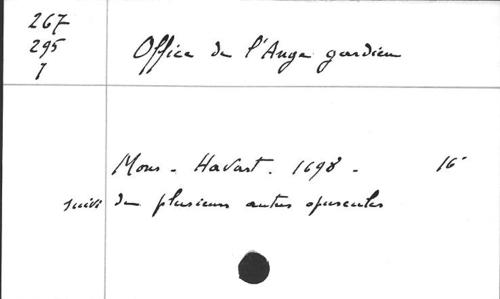 267
295
7
Office de l'Ange gardien
Mons - Havart. 1698 - 16°
suivi de plusieurs autres opuscules